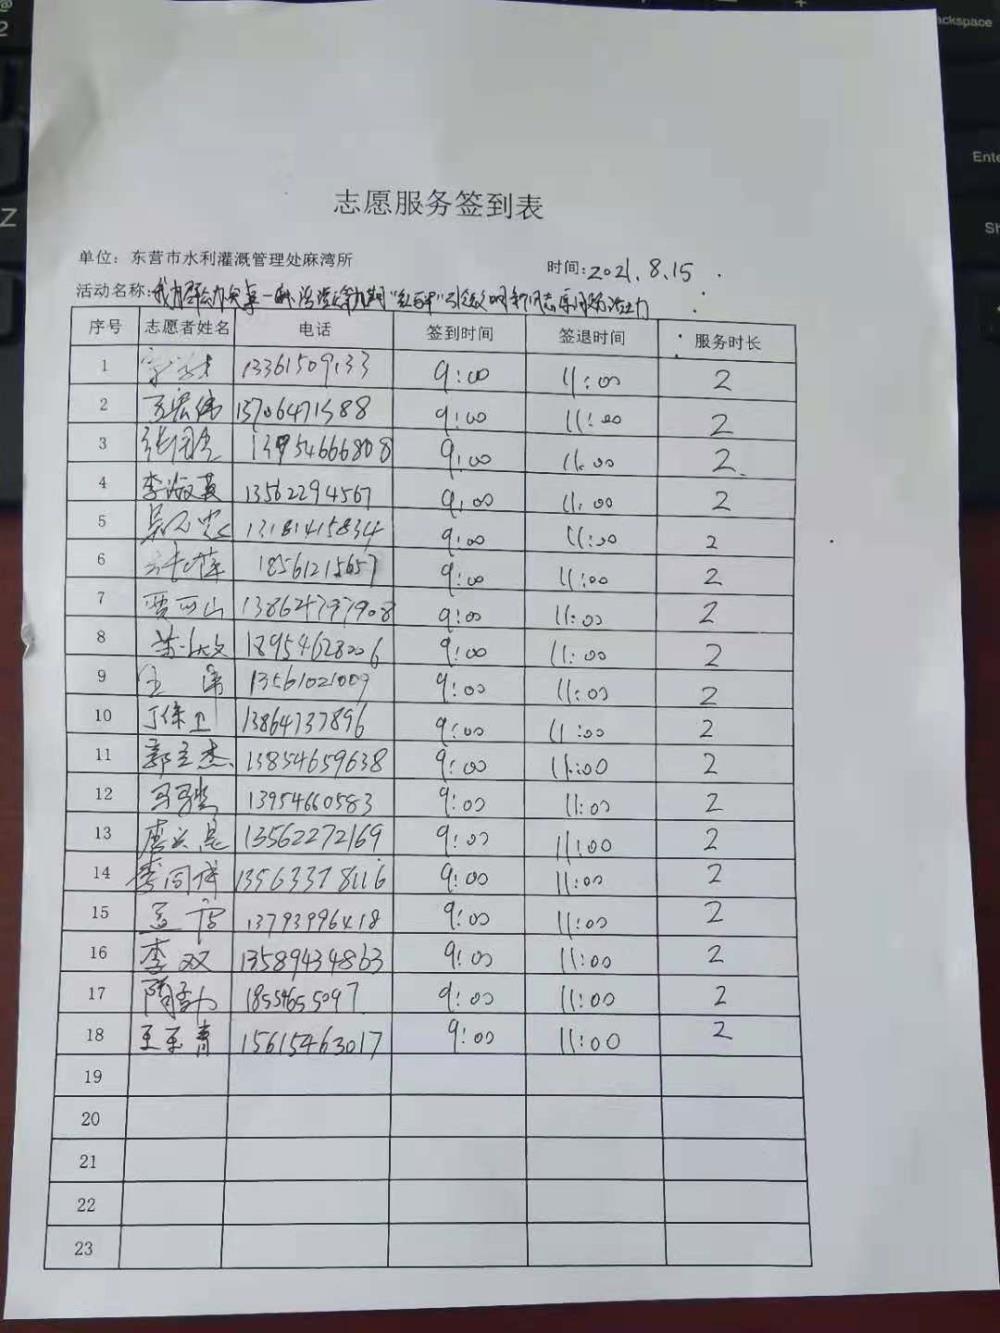 @
2
Z
Backspace
Ente
Sh
志愿服务签到表
单位：东营市水利灌溉管理处麻湾所 时间：2021.8.15
活动名称：我为群众办实事
序号 志愿者姓名 电话 签到时间 签退时间 服务时长
1 13361509133 9:00 11:00 2
2 王宏伟 13706471588 9:00 11:00 2
3 9:00 11:00 2
4 李淑英 13562294567 9:00 11:00 2
5 13181415834 9:00 11:00 2
6 18561215657 9:00 11:00 2
7 贾可山 138647797908 9:00 11:00 2
8 18954628006 9:00 11:00 2
9 13561021009 9:00 11:00 2
10 丁保卫 13864737896 9:00 11:00 2
11 郭立杰 13854659638 9:00 11:00 2
12 13954660583 9:00 11:00 2
13 13562272169 9:00 11:00 2
14 李同祥 13563378116 9:00 11:00 2
15 13793996418 9:00 11:00 2
16 李双 13589434863 9:00 11:00 2
17 18554655097 9:00 11:00 2
18 15615463017 9:00 11:00 2
19
20
21
22
23